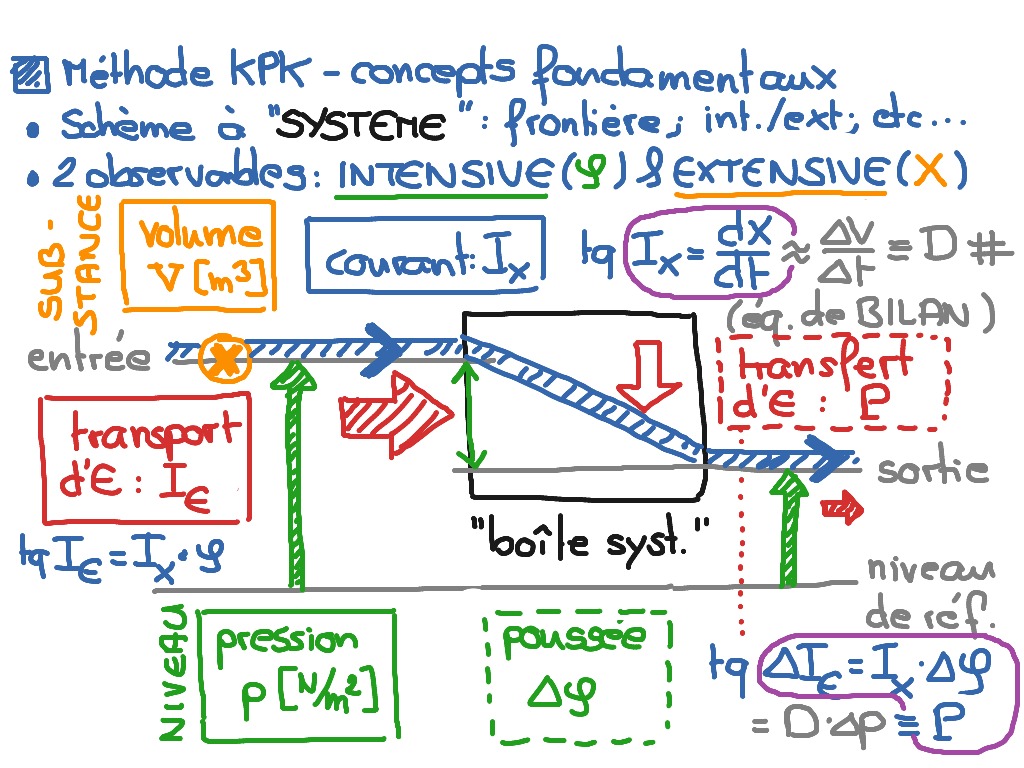 Méthode KPK - concepts fondamentaux
• Schème à "SYSTEME" : frontière ; int./ext ; etc...
• 2 observables : INTENSIVE (φ) & EXTENSIVE (X)
SUB-
STANCE
volume
V [m³]
courant : Iₓ
tq Iₓ = dx/dt ≈ ΔV/Δt = D #
(éq. de BILAN)
entrée
X
transfert
d'E : P
transport
d'E : I_E
sortie
"boîte syst."
tq I_E = Iₓ · φ
niveau
de réf.
NIVEAU
pression
p [N/m²]
poussée
Δφ
tq ΔI_E = Iₓ · Δφ
= D · Δp ≡ P